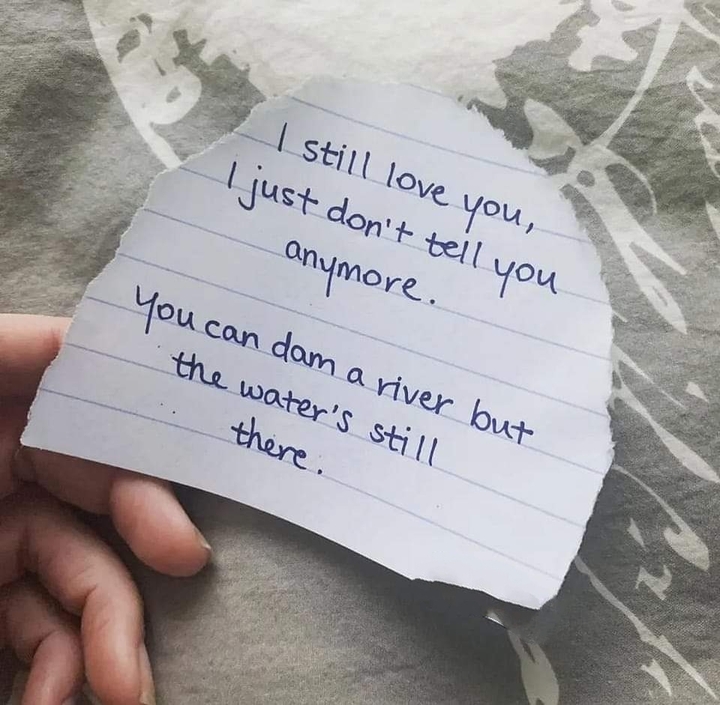 I still love you,
I just don't tell you
anymore.
You can dam a river but
the water's still
there.